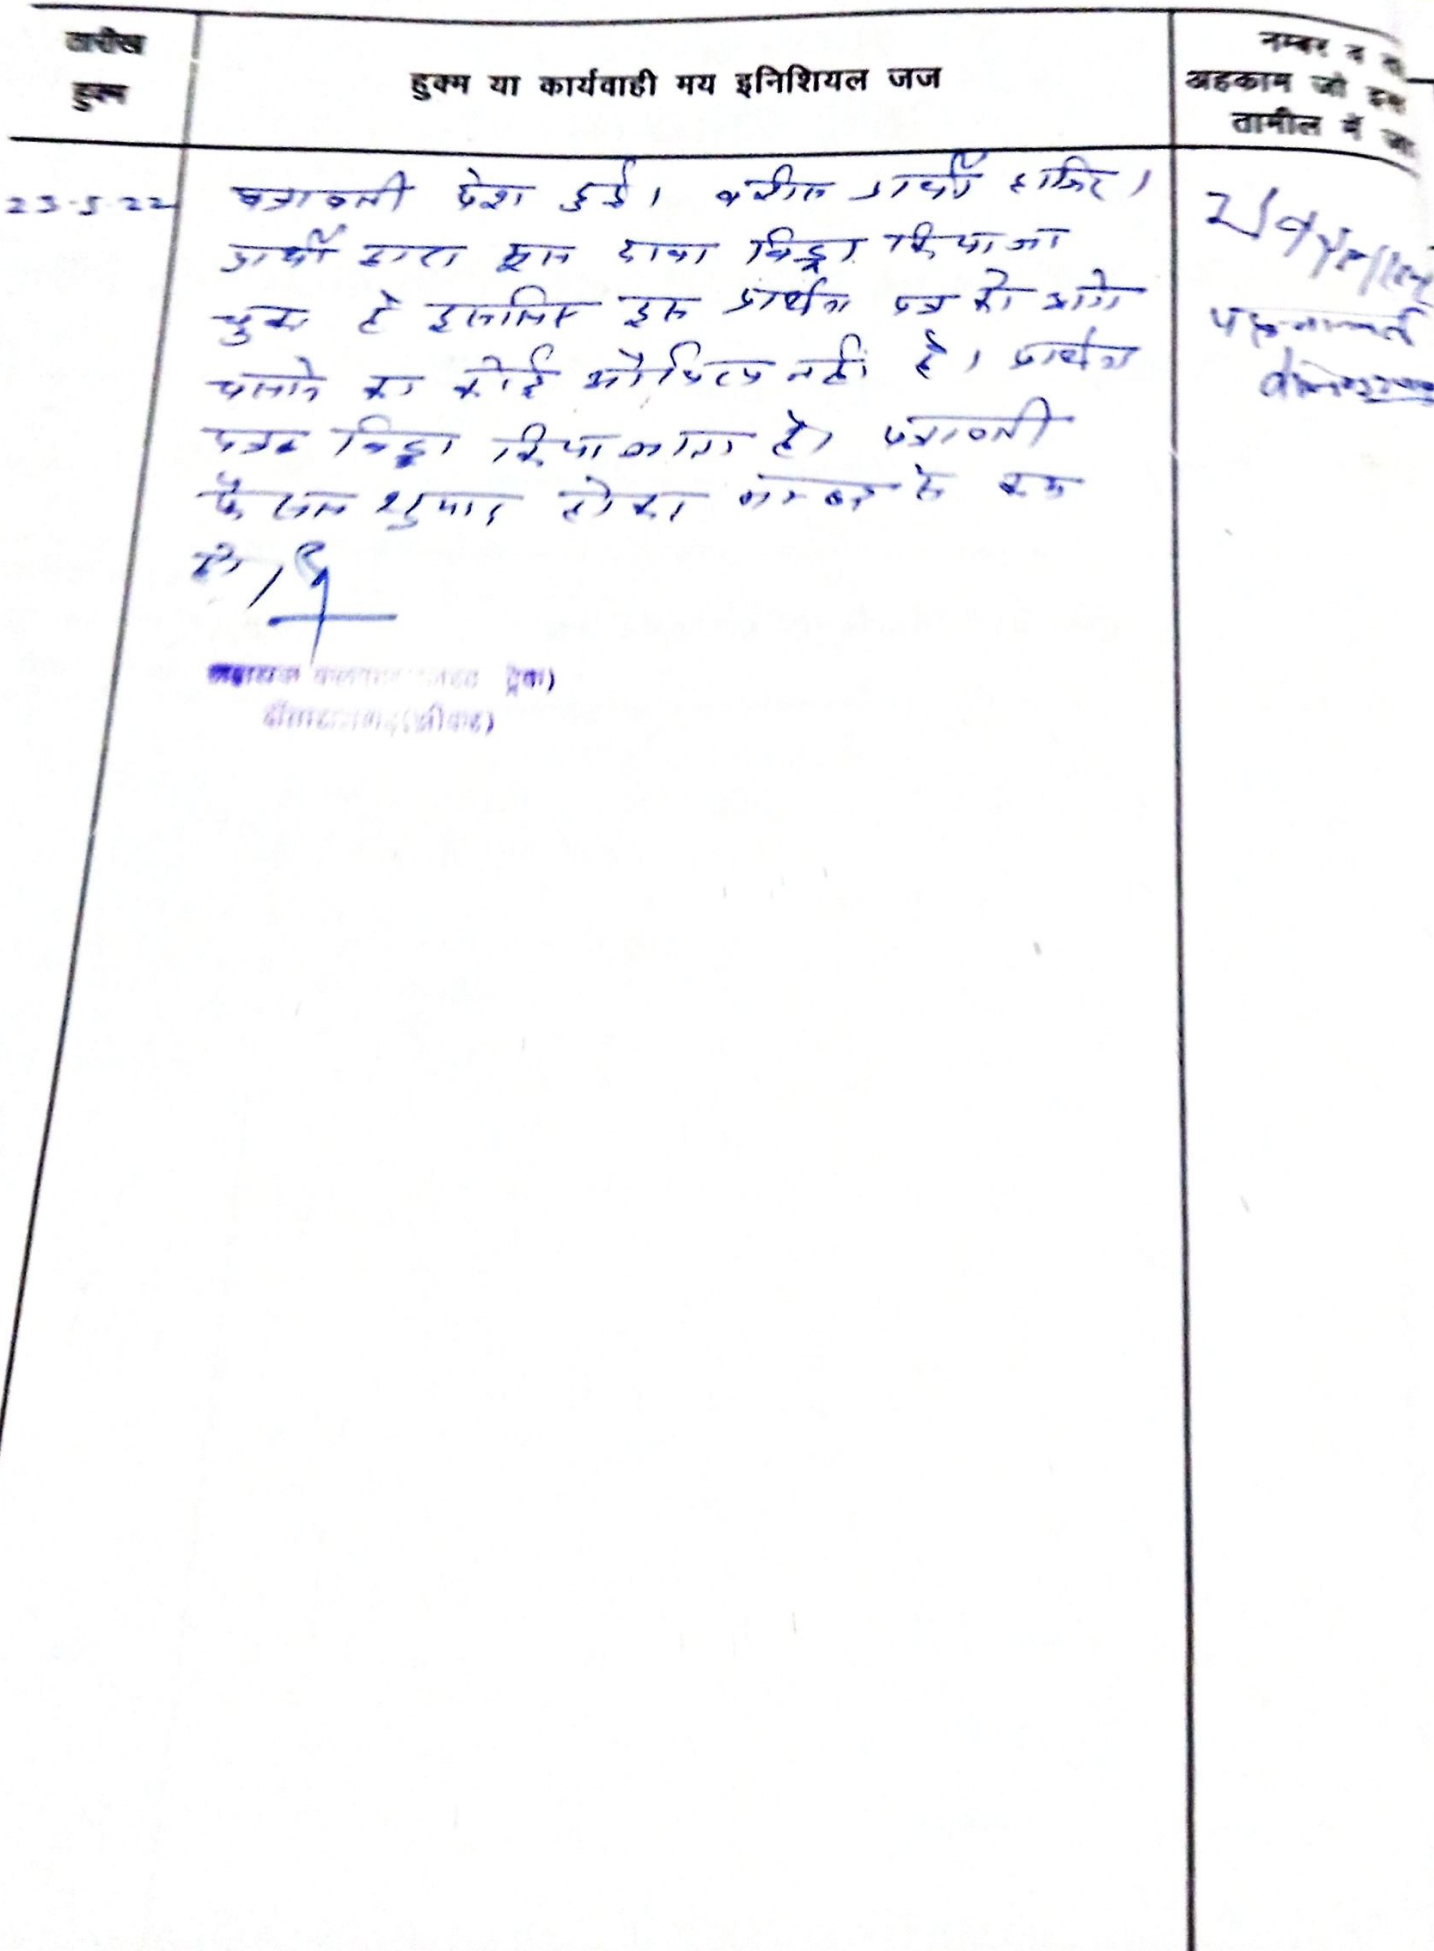 तारीख
हुक्म
हुक्म या कार्यवाही मय इनिशियल जज
नम्बर व
अहकाम जो इस
तामील में जा
23-5-22
पत्रावली पेश हुई। वकील प्रार्थी हाजिर।
प्रार्थी द्वारा मूल दावा विड्रा किया जा
चुका है इसलिए इस प्रार्थना पत्र को आगे
चलाने का कोई औचित्य नहीं है। प्रार्थना
पत्र विड्रा किया जाता है। पत्रावली
फैसल शुमार होकर नम्बर से कम
हो।
सहायक ट्रैक)